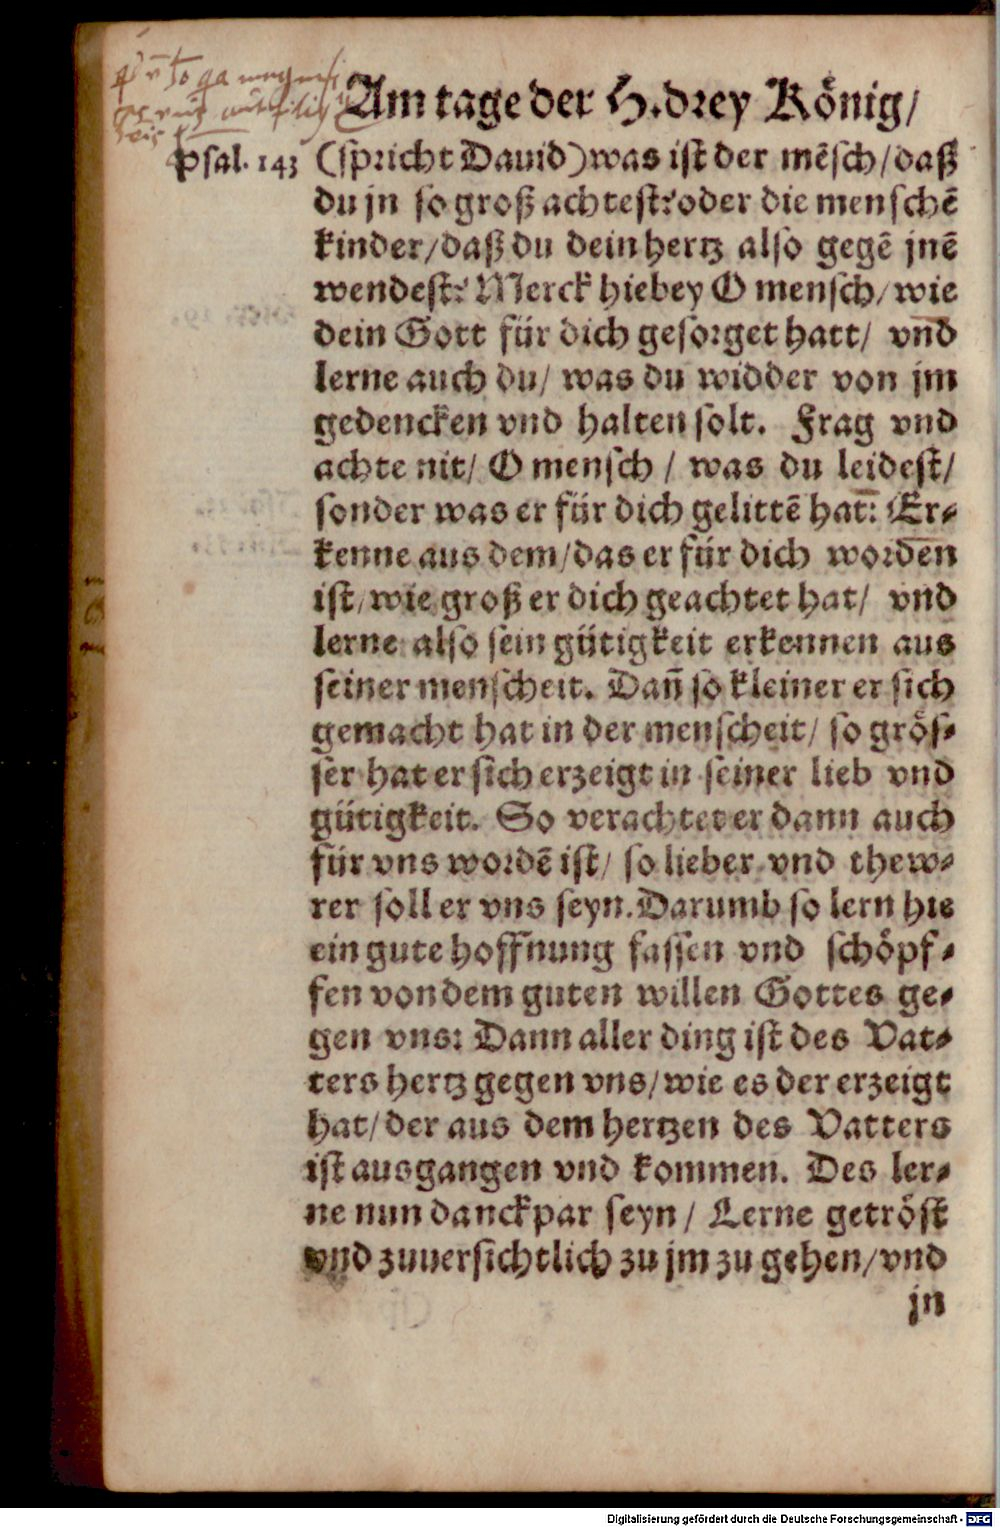 Am tage der H. drey König/
Psal. 143 (spricht Dauid) was ist der mēsch/daß
du jn so groß achtest? oder die menschē
kinder/daß du dein hertz also gegē jnē
wendest? Merck hiebey O mensch/wie
dein Gott für dich gesorget hatt/ vnd
lerne auch du/ was du widder von jm
gedencken vnd halten solt. Frag vnd
achte nit/ O mensch / was du leidest/
sonder was er für dich gelittē hat: Er⸗
kenne aus dem/das er für dich worden
ist/wie groß er dich geachtet hat/ vnd
lerne also sein gütigkeit erkennen aus
seiner menscheit. Dañ so kleiner er sich
gemacht hat in der menscheit/ so grös⸗
ser hat er sich erzeigt in seiner lieb vnd
gütigkeit. So verachtet er dann auch
für vns wordē ist/ so lieber vnd thew⸗
rer soll er vns seyn. Darumb so lern hie
ein gute hoffnung fassen vnd schöpf⸗
fen von dem guten willen Gottes ge⸗
gen vns: Dann aller ding ist des Vat⸗
ters hertz gegen vns/wie es der erzeigt
hat/der aus dem hertzen des Vatters
ist ausgangen vnd kommen. Des ler⸗
ne nun danckpar seyn/ Lerne getröst
vnd zuuersichtlich zu jm zu gehen/vnd
jn
Digitalisierung gefördert durch die Deutsche Forschungsgemeinschaft - DFG